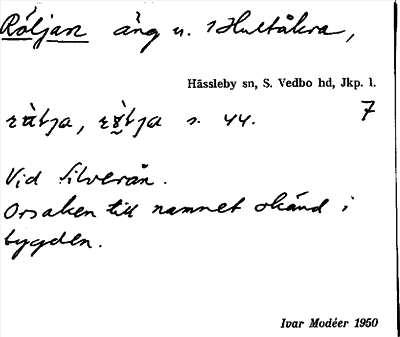 Röljan äng u. Hultåkra,
Hässleby sn, S. Vedbo hd, Jkp. l.
s. 44. 7
Vid Silverån.
Orsaken till namnet okänd i
bygden.
Ivar Modéer 1950